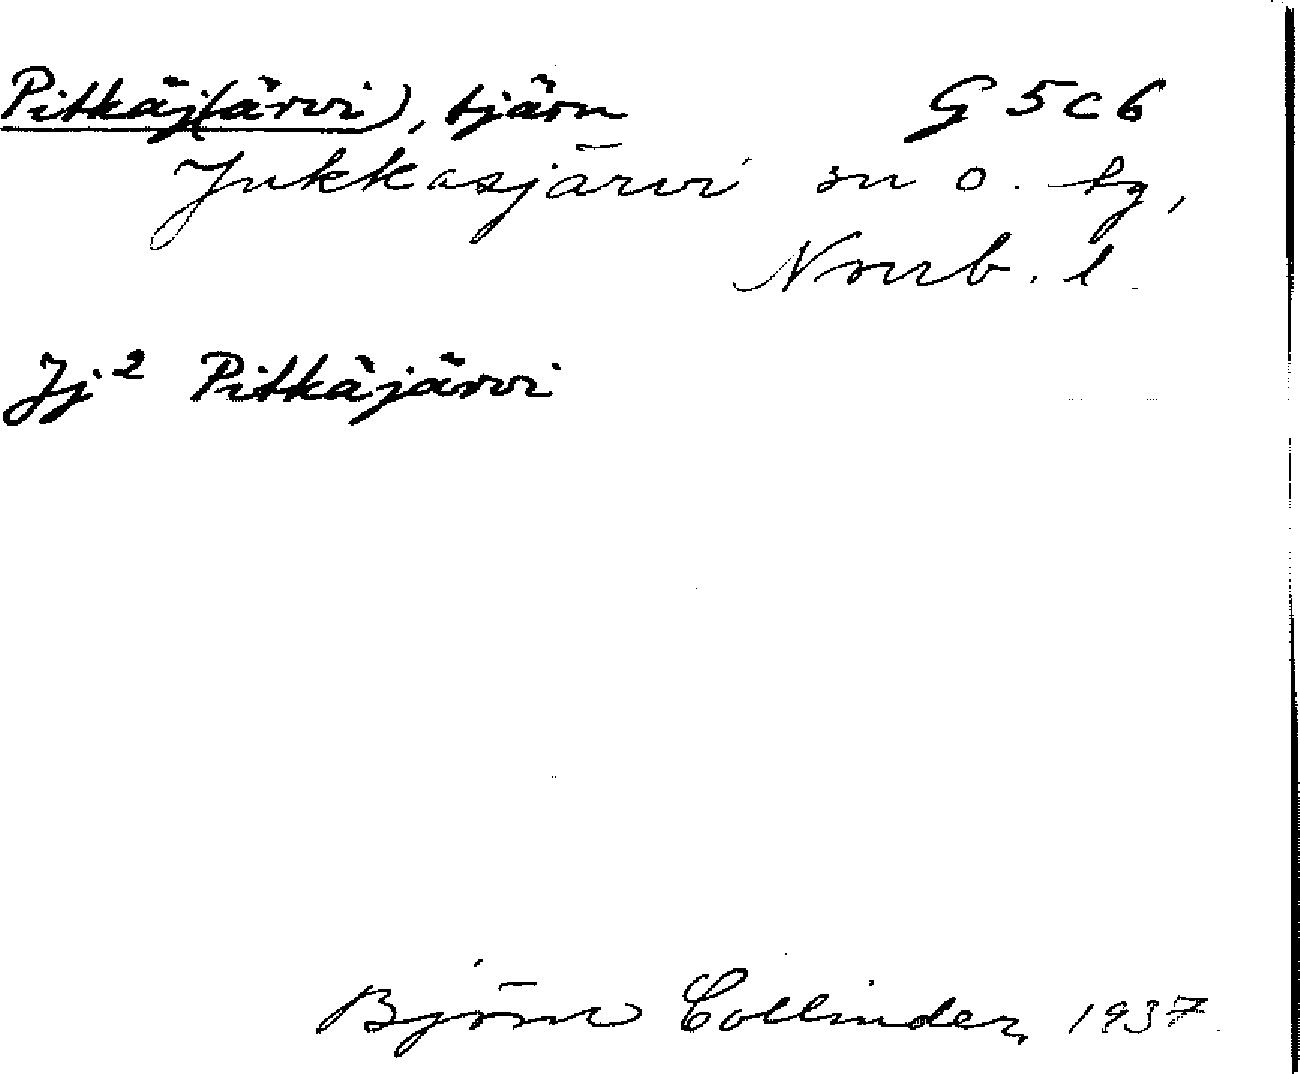 Pitkäj(ärvi), tjärn G 5 c 6
Jukkasjärvi sn o. tg,
Norrb. l.
Jj² Pitkäjärvi
Björn Collinder, 1937.